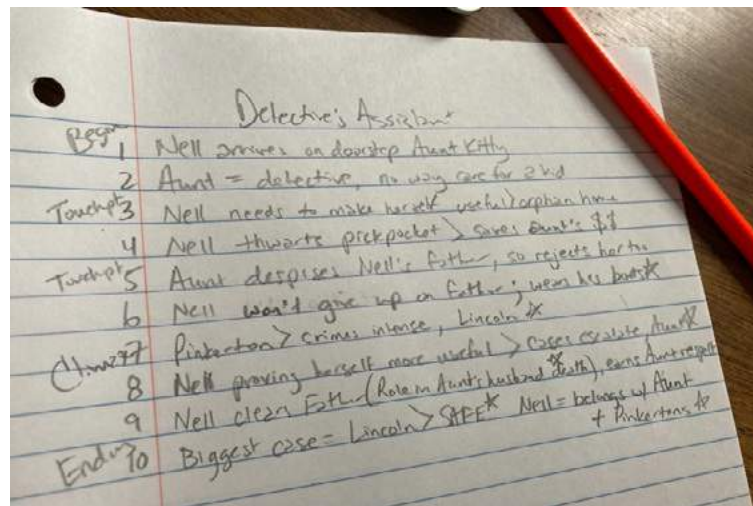 Detective's Assistant
Begin 1 Nell arrives on doorstep Aunt Kitty
2 Aunt = detective, no way care for a kid
Touchpt 3 Nell needs to make herself useful > orphan home
4 Nell thwarts pickpocket > saves Aunt's $$
Touchpt 5 Aunt despises Nell's father, so rejects her too
6 Nell won't give up on father; wears his boots*
Climax 7 Pinkerton > crimes intense, Lincoln *
8 Nell proving herself more useful > cases escalate Aunt *
9 Nell clean Father (Role in Aunt's husband death *), earns Aunt respect
Ending 10 Biggest case = Lincoln > SAFE * Nell = belongs w/ Aunt
+ Pinkertons *